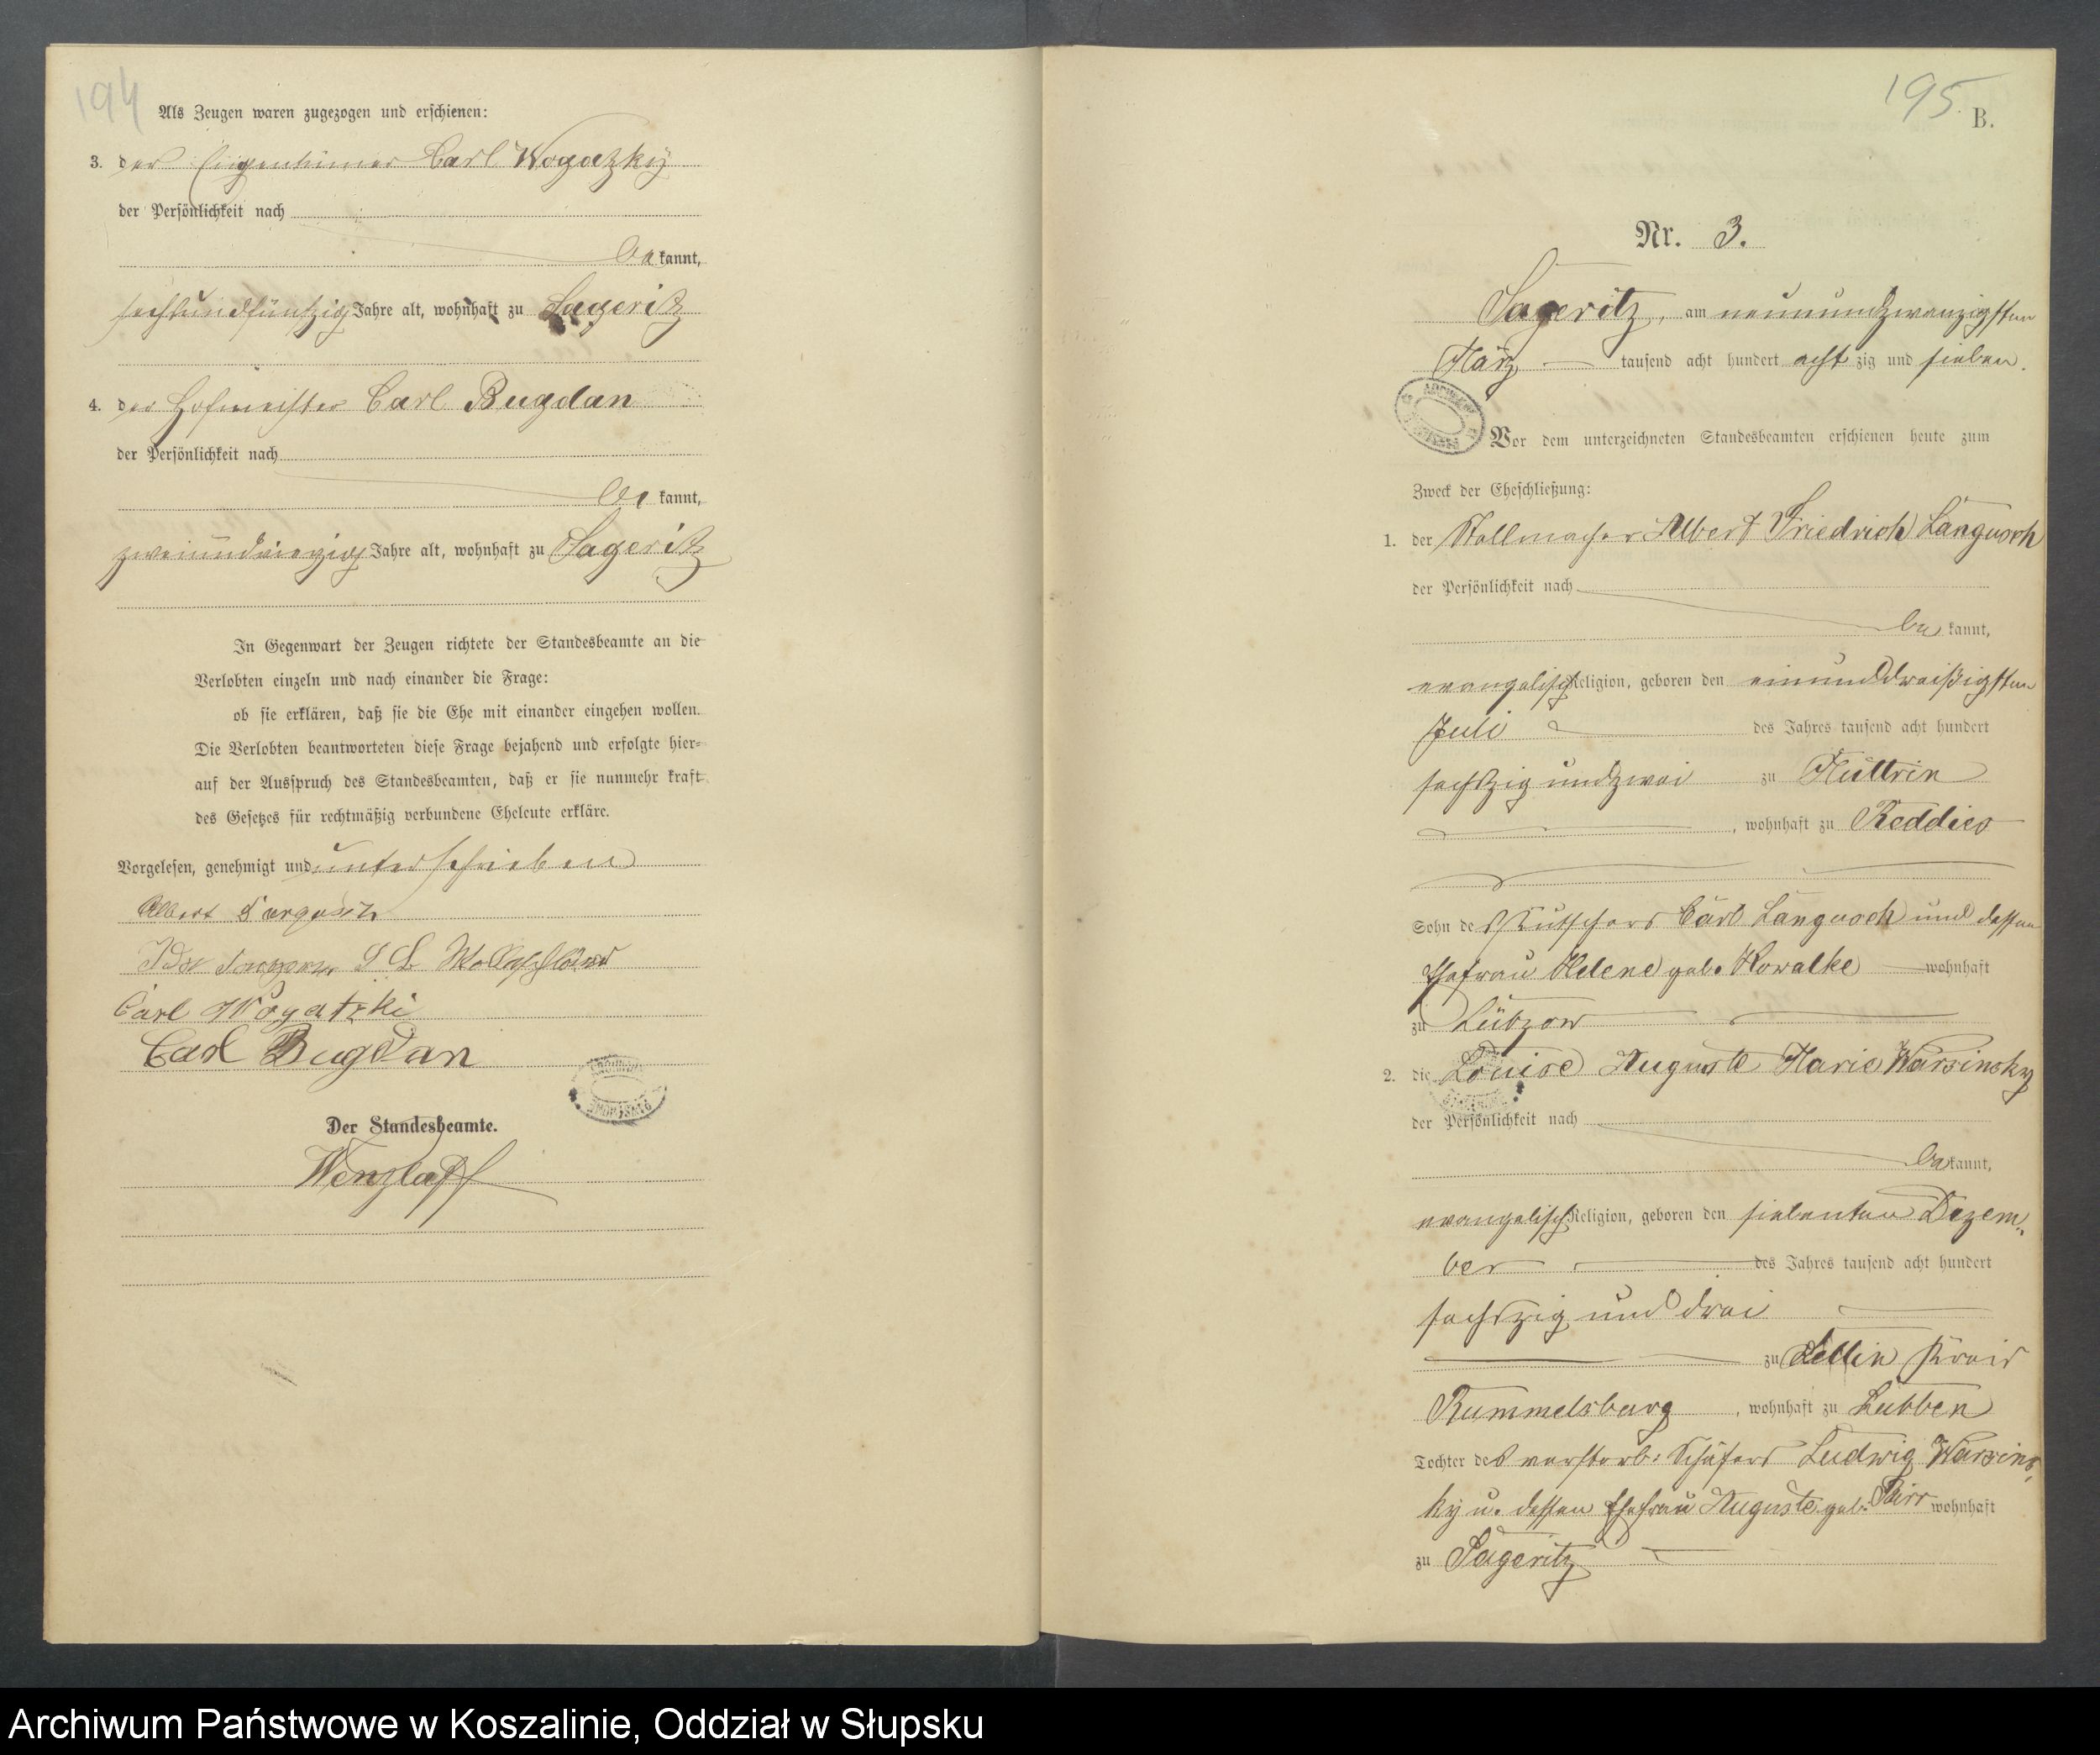 194
Als Zeugen waren zugezogen und erschienen:
3. der Eigenthümer Carl Wogatzky
der Persönlichkeit nach
be kannt,
sechsundfünfzig Jahre alt, wohnhaft zu Sageritz
4. der Hofmeister Carl Bugdan
der Persönlichkeit nach
be kannt,
zweiundvierzig Jahre alt, wohnhaft zu Sageritz
In Gegenwart der Zeugen richtete der Standesbeamte an die
Verlobten einzeln und nach einander die Frage:
ob sie erklären, daß sie die Ehe mit einander eingehen wollen.
Die Verlobten beantworteten diese Frage bejahend und erfolgte hier-
auf der Ausspruch des Standesbeamten, daß er sie nunmehr kraft
des Gesetzes für rechtmäßig verbundene Eheleute erkläre.
Vorgelesen, genehmigt und unterschrieben
Albert
Ida
Carl Wogatzki
Carl Bugdan
Der Standesbeamte.
Wenzlaff
195
B.
Nr. 3.
Sageritz, am neunundzwanzigsten
März tausend acht hundert acht zig und sieben.
Vor dem unterzeichneten Standesbeamten erschienen heute zum
Zweck der Eheschließung:
1. der Stellmacher Albert Friedrich Langusch
der Persönlichkeit nach
be kannt,
evangelisch Religion, geboren den einunddreißigsten
Juli des Jahres tausend acht hundert
sechszig und zwei zu Müttrin
, wohnhaft zu Reddies
Sohn des Kutschers Carl Langusch und dessen
Ehefrau Helene geb. Kowalke wohnhaft
zu Lübzow
2. die Louise Auguste Marie Warsinsky
der Persönlichkeit nach
be kannt,
evangelisch Religion, geboren den siebenten Dezem-
ber des Jahres tausend acht hundert
sechszig und drei
zu Kreis
Rummelsburg, wohnhaft zu Lübben
Tochter des verstorb: Schäfers Ludwig Warsins-
ky u. dessen Ehefrau Auguste geb. Pirr wohnhaft
zu Sageritz
Archiwum Państwowe w Koszalinie, Oddział w Słupsku